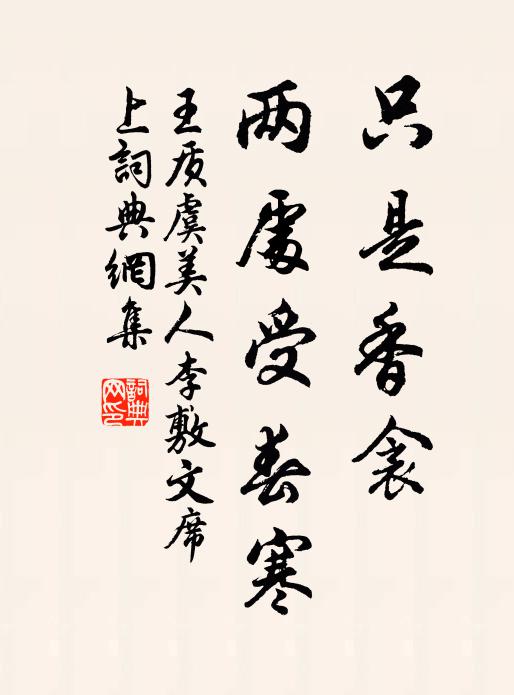 只是香衾
两處受春寒
王质虞美人李敷文席
上詞典網集
詞典网印